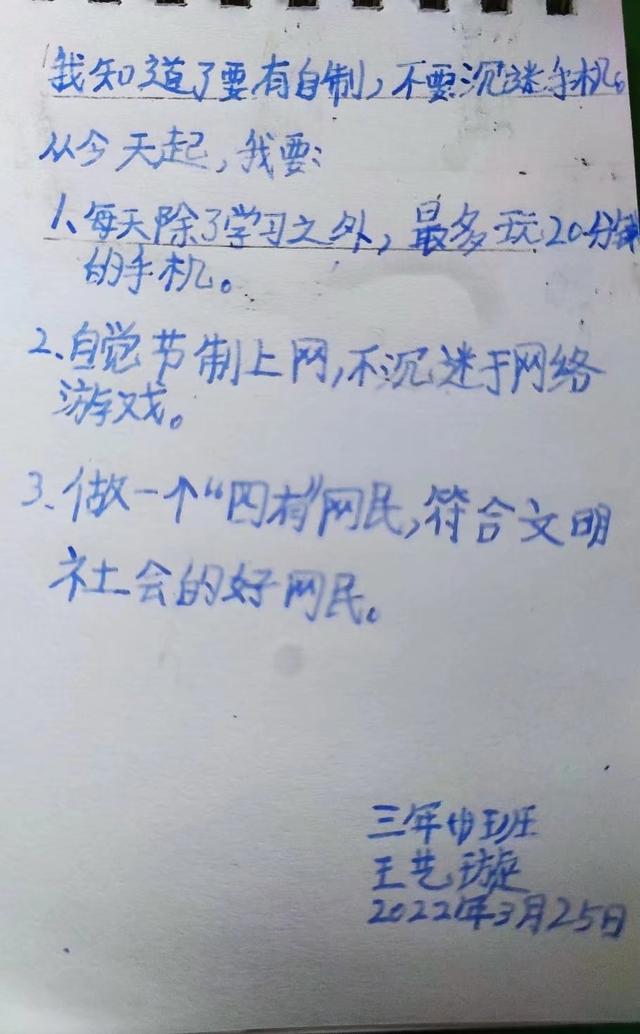 我知道了要有自制，不要沉迷手机。
从今天起，我要：
1、每天除了学习之外，最多玩20分钟
的手机。
2、自觉节制上网，不沉迷于网络
游戏。
3、做一个“四有”网民，符合文明
社会的好网民。
三年中班
王艺璇
2022年3月25日